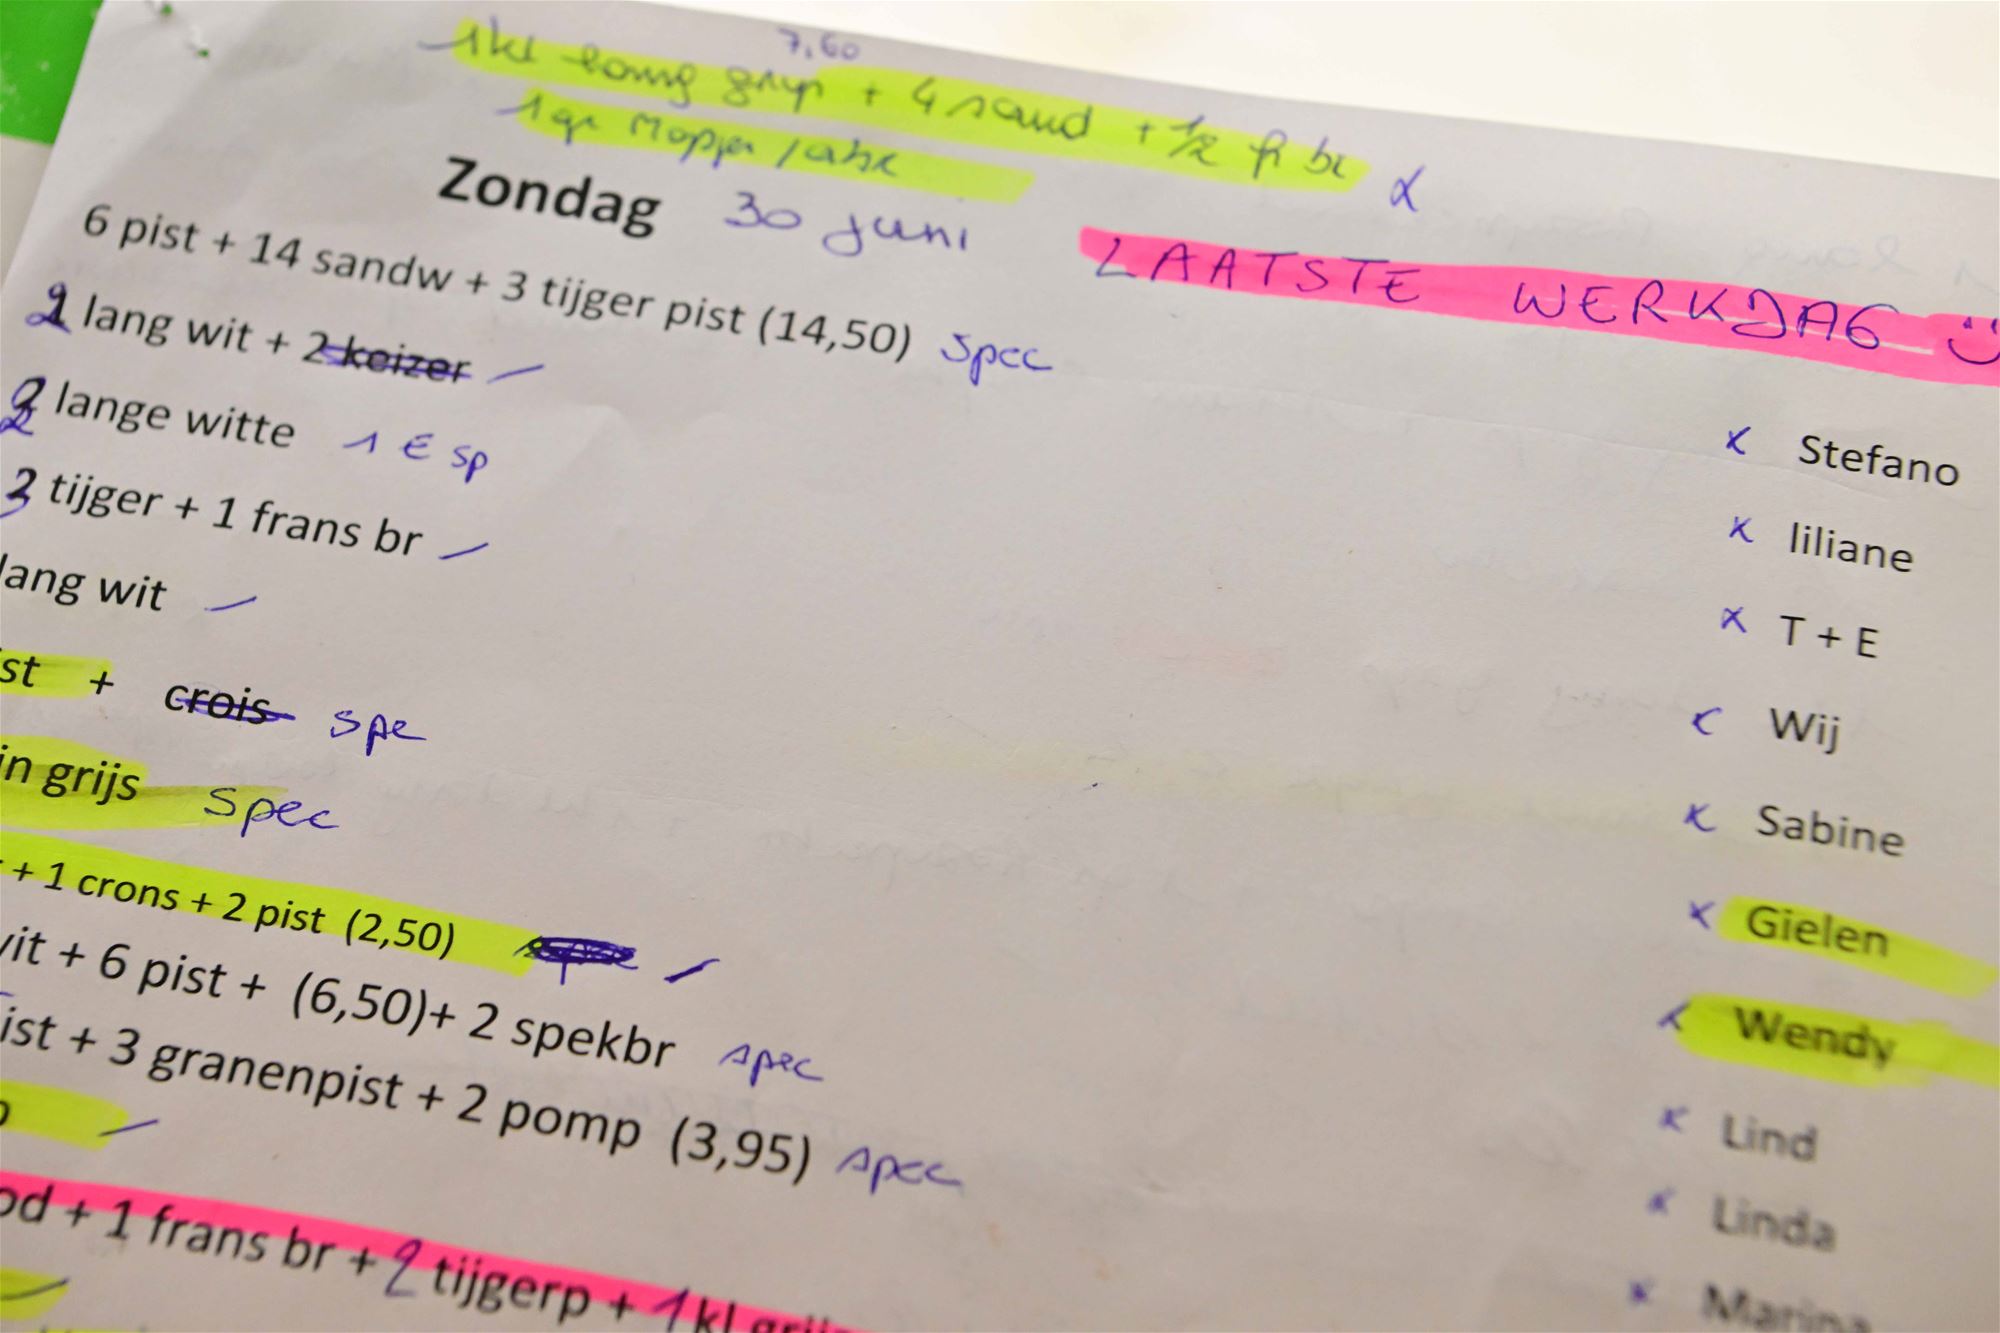 7,60
1 kl lowng gryp + 4 sand + 1/2 fr br
1 gr
Zondag 30 juni
LAATSTE WERKDAG :)
6 pist + 14 sandw + 3 tijger pist (14,50) spec
lang wit + 2 keizer
2 lange witte 1 € sp
3 tijger + 1 frans br
lang wit
st + crois spe
in grijs spec
+ 1 crons + 2 pist (2,50)
it + 6 pist + (6,50)+ 2 spekbr spec
ist + 3 granenpist + 2 pomp (3,95) spec
od + 1 frans br + 2 tijgerp + 1 kl grij
x Stefano
x liliane
x T + E
x Wij
x Sabine
x Gielen
x Wendy
x Lind
x Linda
x Marina